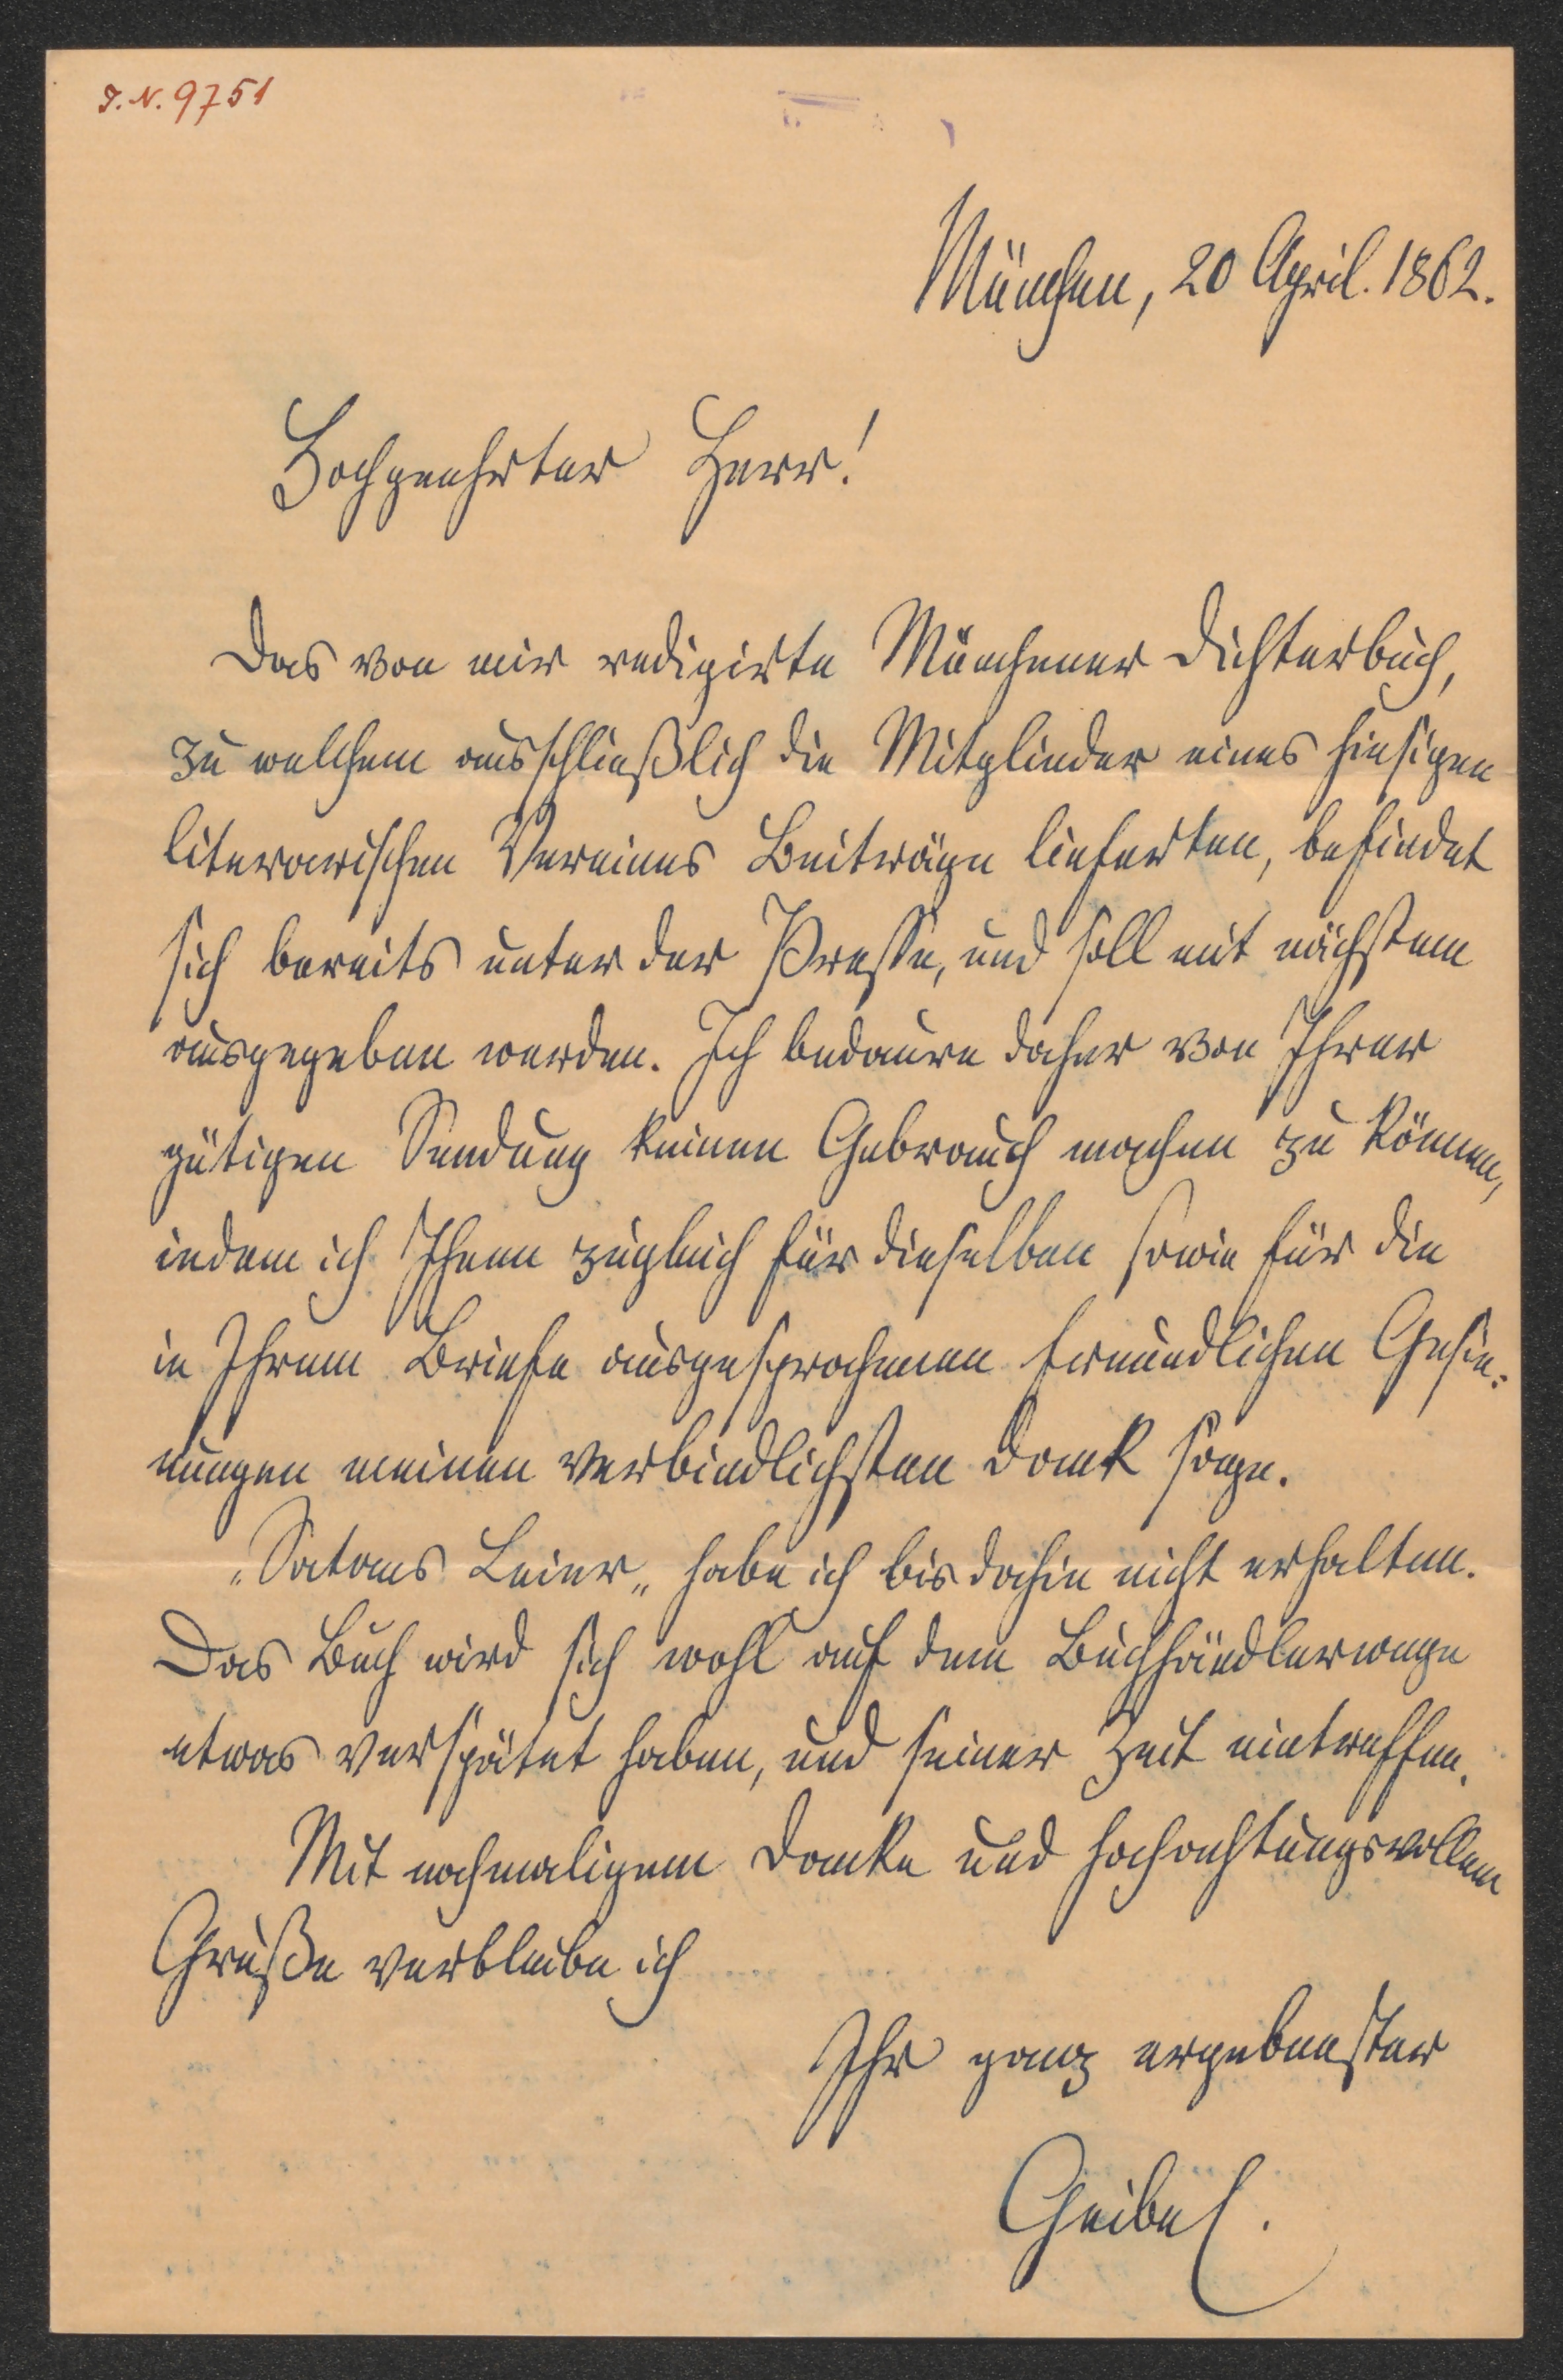 J. N. 9751
München, 20 April. 1862.
Hochgeehrter Herr!
Das von mir redigirte Münchener Dichterbuch,
zu welchem ausschließlich die Mitglieder eines hiesigen
literarischen Vereines Beiträge lieferten, befindet
sich bereits unter der Presse, und soll mit nächstem
ausgegeben werden. Ich bedaure daher von Ihrer
gütigen Sendung keinen Gebrauch machen zu können,
indem ich Ihnen zugleich für dieselben sowie für die
in Ihrem Briefe ausgesprochenen freundlichen Gesin:
nungen meinen verbindlichsten Dank sage.
„Satans Leier„ habe ich bis dahin nicht erhalten.
Das Buch wird sich wohl auf dem Buchhändlerwege
etwas verspätet haben, und seiner Zeit eintreffen.
Mit nochmaligem Danke und hochachtungsvollem
Gruße verbleibe ich
Ihr ganz ergebenster
Geibel.